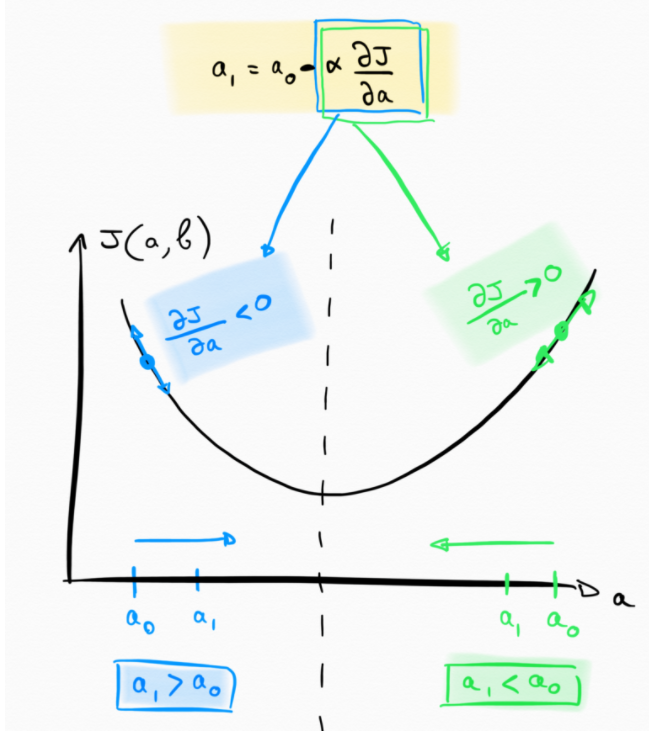 a₁ = a₀ - ∝ ∂J/∂a
J(a,b)
∂J/∂a < 0
∂J/∂a > 0
a₀ a₁ a₁ a₀ a
a₁ > a₀ a₁ < a₀